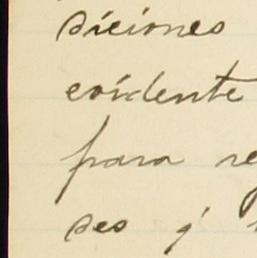 diciones
evidente
para re
des y